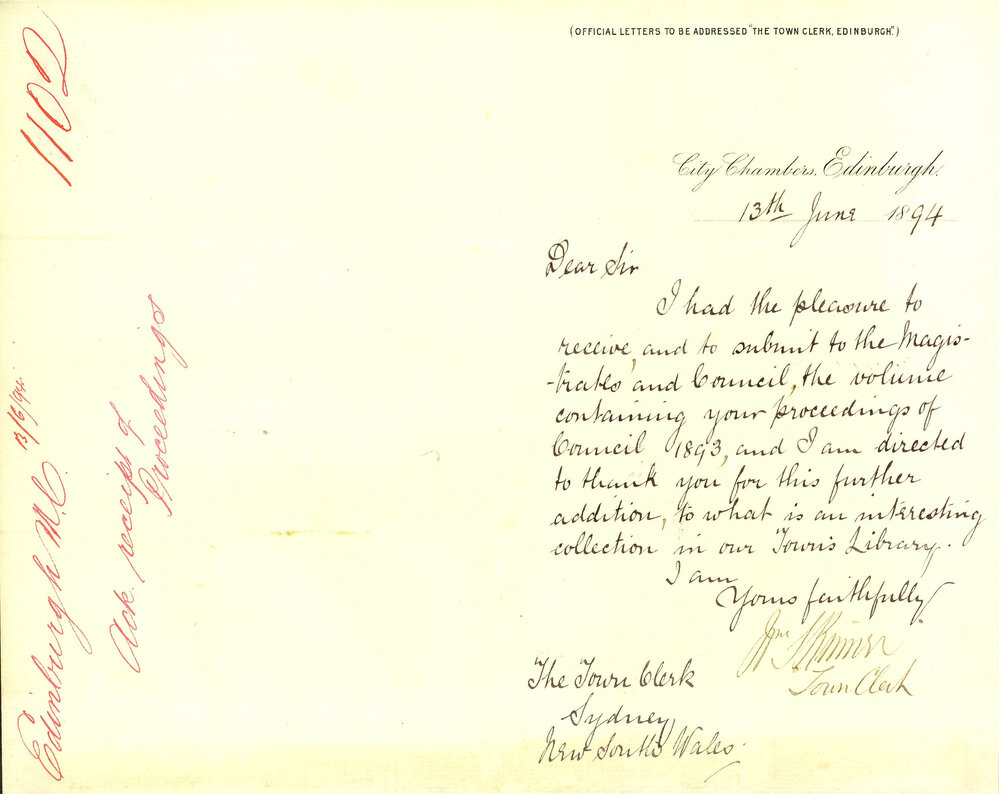 (OFFICIAL LETTERS TO BE ADDRESSED "THE TOWN CLERK, EDINBURGH.")
City Chambers, Edinburgh.
13th June 1894
Dear Sir
I had the pleasure to
receive, and to submit to the Magis-
-trates and Council, the volume
containing your proceedings of
Council 1893, and I am directed
to thank you for this further
addition, to what is an interesting
collection in our Town's Library.
I am
Yours faithfully
Wm Skinner
Town Clerk
The Town Clerk
Sydney,
New South Wales.
1102
Edinburgh M.C. 13/6/94.
Ack. receipt of
Proceedings